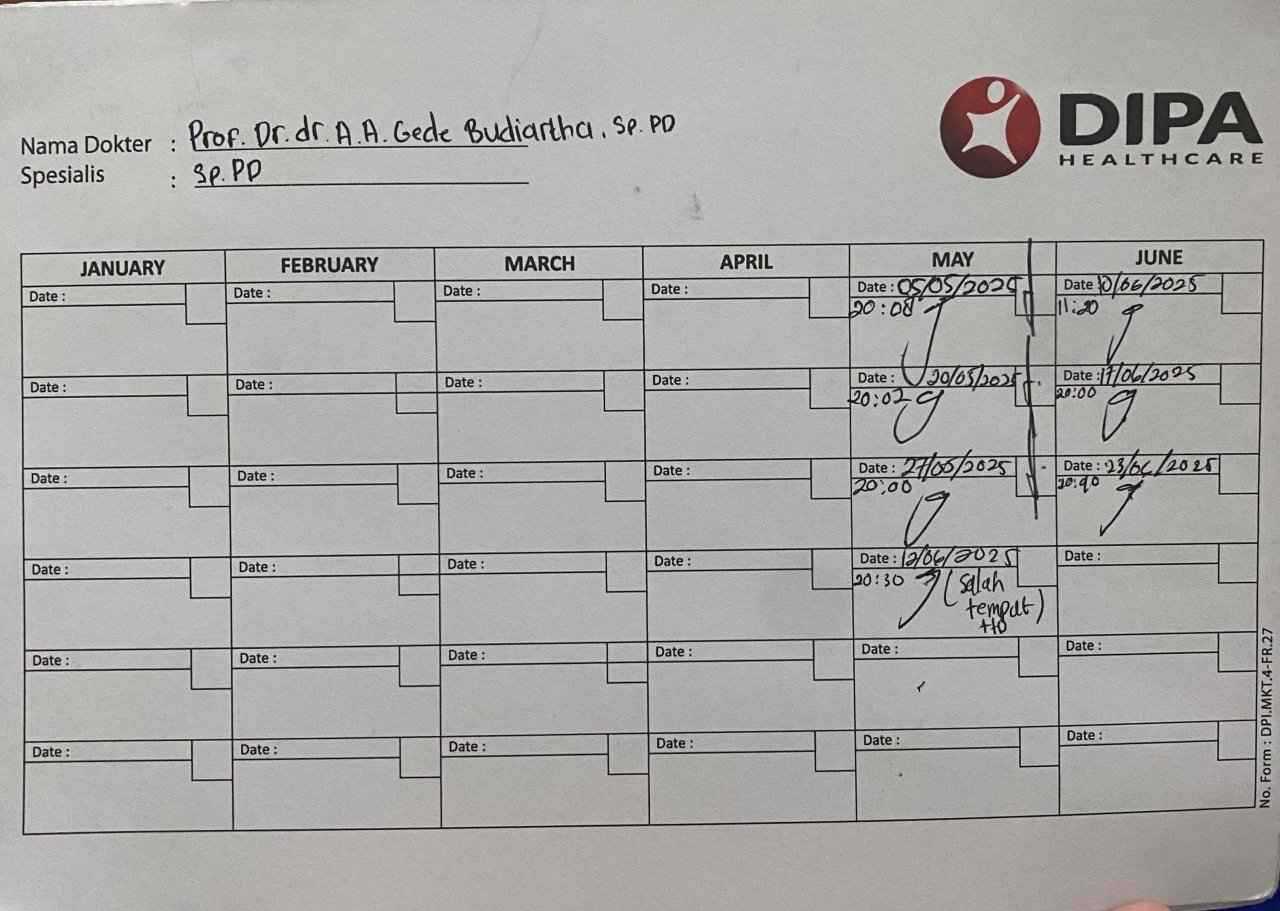 DIPA
HEALTHCARE
Nama Dokter : Prof. Dr. dr. A.A. Gede Budiartha, Sp. PD
Spesialis : Sp. PD
JANUARY FEBRUARY MARCH APRIL MAY JUNE
Date : Date : Date : Date : Date : 05/05/2025 Date 10/06/2025
20:08 11:20
Date : Date : Date : Date : Date : 20/05/2025 Date : 17/06/2025
20:02 20:00
Date : Date : Date : Date : Date : 27/05/2025 Date : 23/06/2025
20:00 20:40
Date : Date : Date : Date : Date : 12/06/2025 Date :
20:30 (salah
tempat)
ttd
Date : Date : Date : Date : Date : Date :
Date : Date : Date : Date : Date : Date :
No. Form : DPI.MKT.4-FR.27